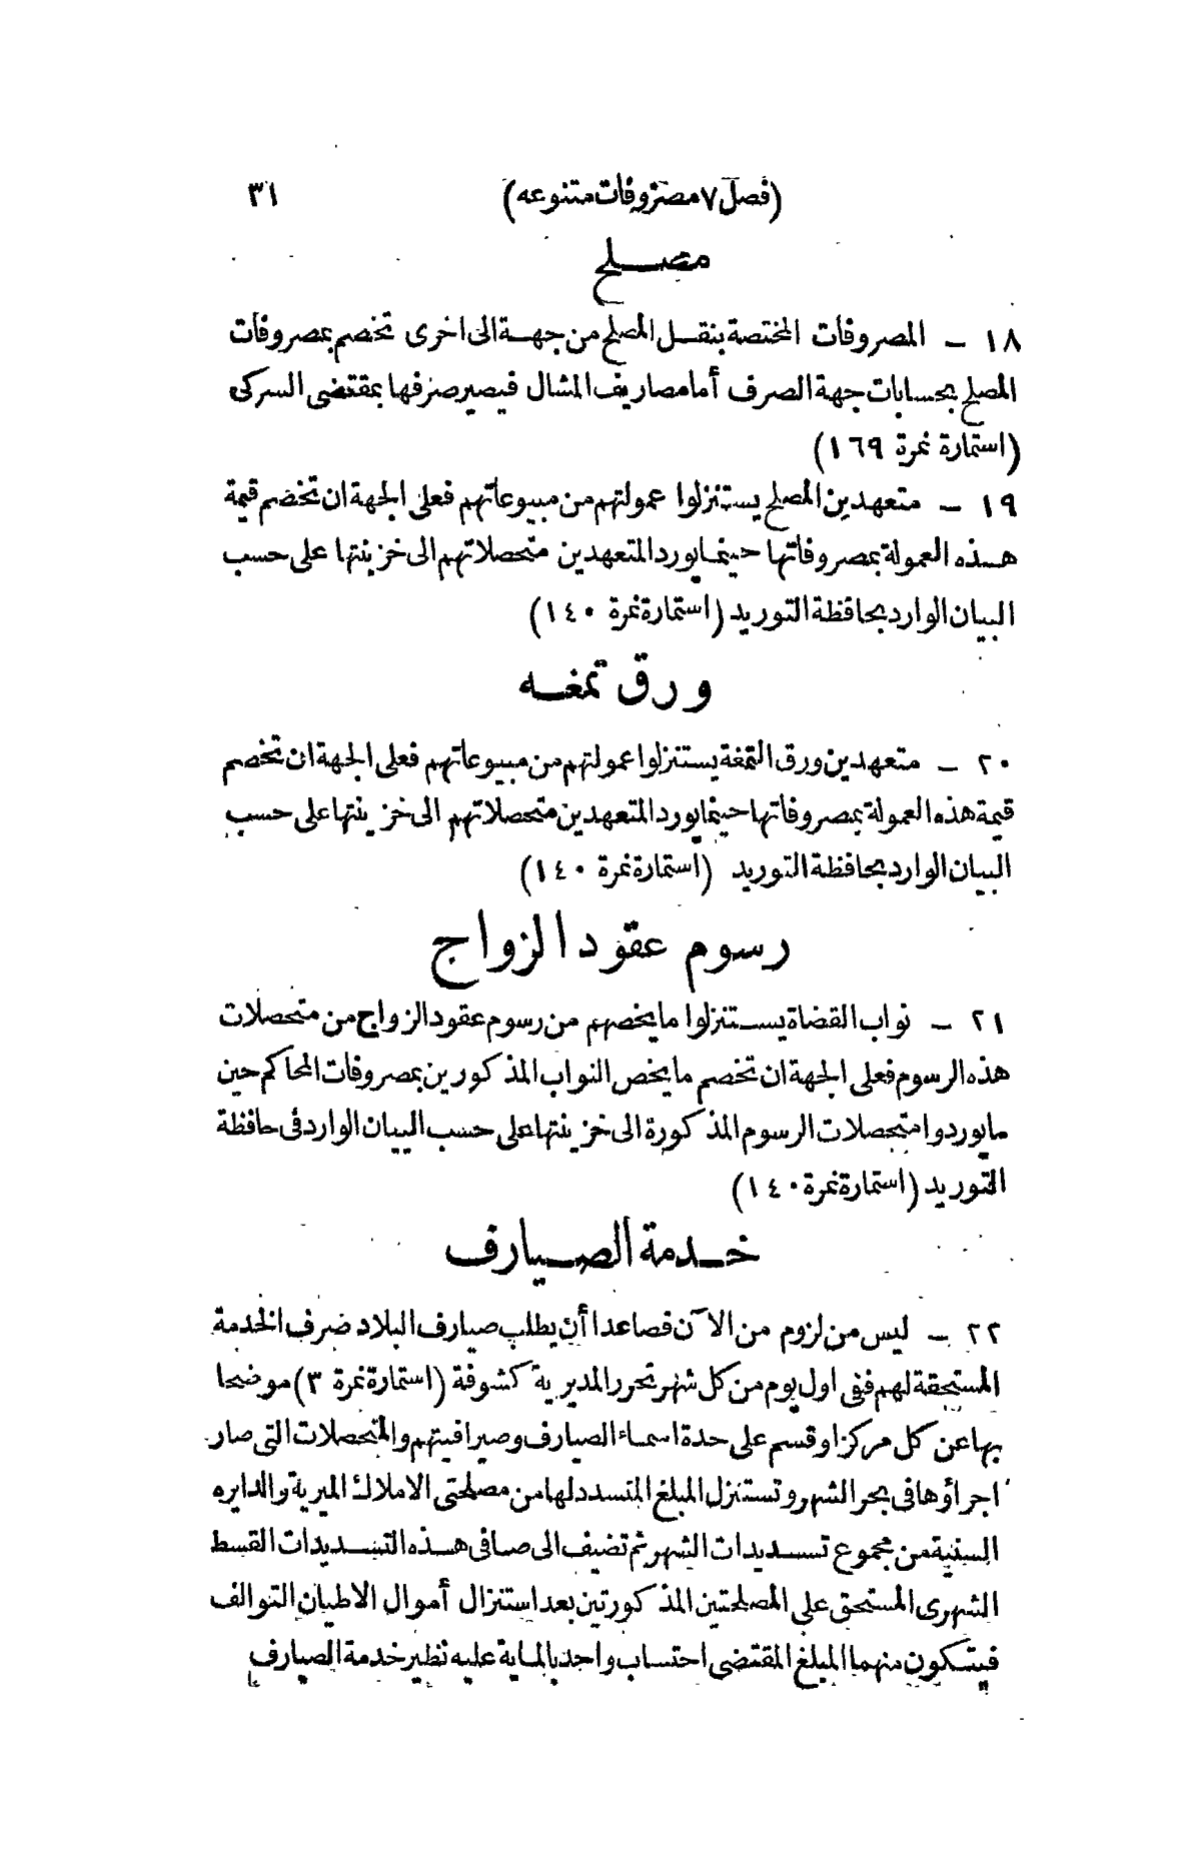 (فصل ٧ مصروفات متنوعه) ٣١
مصلح
١٨ – المصروفات المختصة بنقل المصلح من جهة الى اخرى تخصم بمصروفات
المصلح بحسابات جهة الصرف أما مصاريف المشال فيصير صرفها بمقتضى السركى
(استمارة نمرة ١٦٩)
١٩ – متعهدين المصلح يستنزلوا عمولتهم من مبيوعاتهم فعلى الجهة ان تخصم قيمة
هذه العمولة بمصروفاتها حينما يورد المتعهدين متحصلاتهم الى خزينتها على حسب
البيان الوارد بحافظة التوريد (استمارة نمرة ١٤٠)
ورق تمغه
٢٠ – متعهدين ورق التمغة يستنزلوا عمولتهم من مبيوعاتهم فعلى الجهة ان تخصم
قيمة هذه العمولة بمصروفاتها حينما يورد المتعهدين متحصلاتهم الى خزينتها على حسب
البيان الوارد بحافظة التوريد (استمارة نمرة ١٤٠)
رسوم عقود الزواج
٢١ – نواب القضاة يستنزلوا ما يخصهم من رسوم عقود الزواج من متحصلات
هذه الرسوم فعلى الجهة ان تخصم ما يخص النواب المذكورين بمصروفات المحاكم حين
ما يوردوا متحصلات الرسوم المذكورة الى خزينتها على حسب البيان الوارد فى حافظة
التوريد (استمارة نمرة ١٤٠)
خدمة الصيارف
٢٢ – ليس من لزوم من الآن فصاعدا أن يطلب صيارف البلاد صرف الخدمة
المستحقة لهم ففى اول يوم من كل شهر تحرر المديرية كشوفة (استمارة نمرة ٣) موضحا
بها عن كل مركز او قسم على حدة اسماء الصيارف وصيرافيتهم والمتحصلات التى صار
اجراؤها فى بحر الشهر وتستنزل المبلغ المتسدد لها من مصلحتى الاملاك الميرية والدايره
السنية من مجموع تسديدات الشهر ثم تضيف الى صافى هذه التسديدات القسط
الشهرى المستحق على المصلحتين المذكورتين بعد استنزال أموال الاطيان التوالف
فيتكون منهما المبلغ المقتضى احتساب واحد بالماية عليه نظير خدمة الصيارف